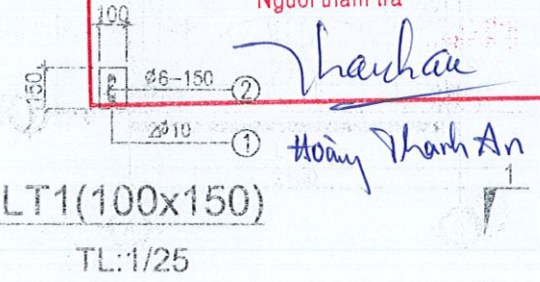 Người thẩm tra
100
150
Ø6-150
2
2Ø10
1
Hoàng Thanh An
LT1(100x150)
1
TL:1/25